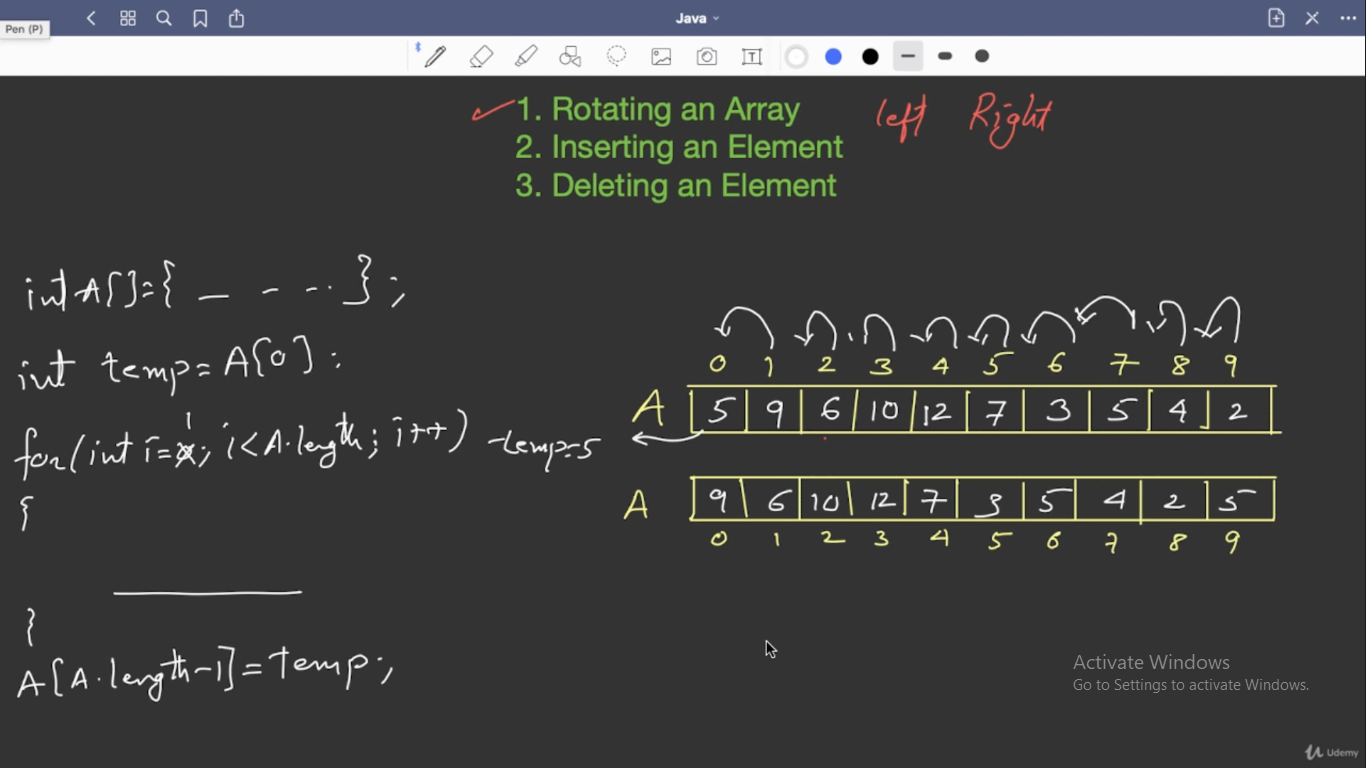 Java
Pen (P)
T
1. Rotating an Array left Right
2. Inserting an Element
3. Deleting an Element
int A[]={ _ - - .. };
int temp=A[0];
for(int i=1; i<A.length; i++)
{
}
A[A.length-1]=temp;
0 1 2 3 4 5 6 7 8 9
A 5 9 6 10 12 7 3 5 4 2
temp=5
A 9 6 10 12 7 3 5 4 2 5
0 1 2 3 4 5 6 7 8 9
Activate Windows
Go to Settings to activate Windows.
Udemy